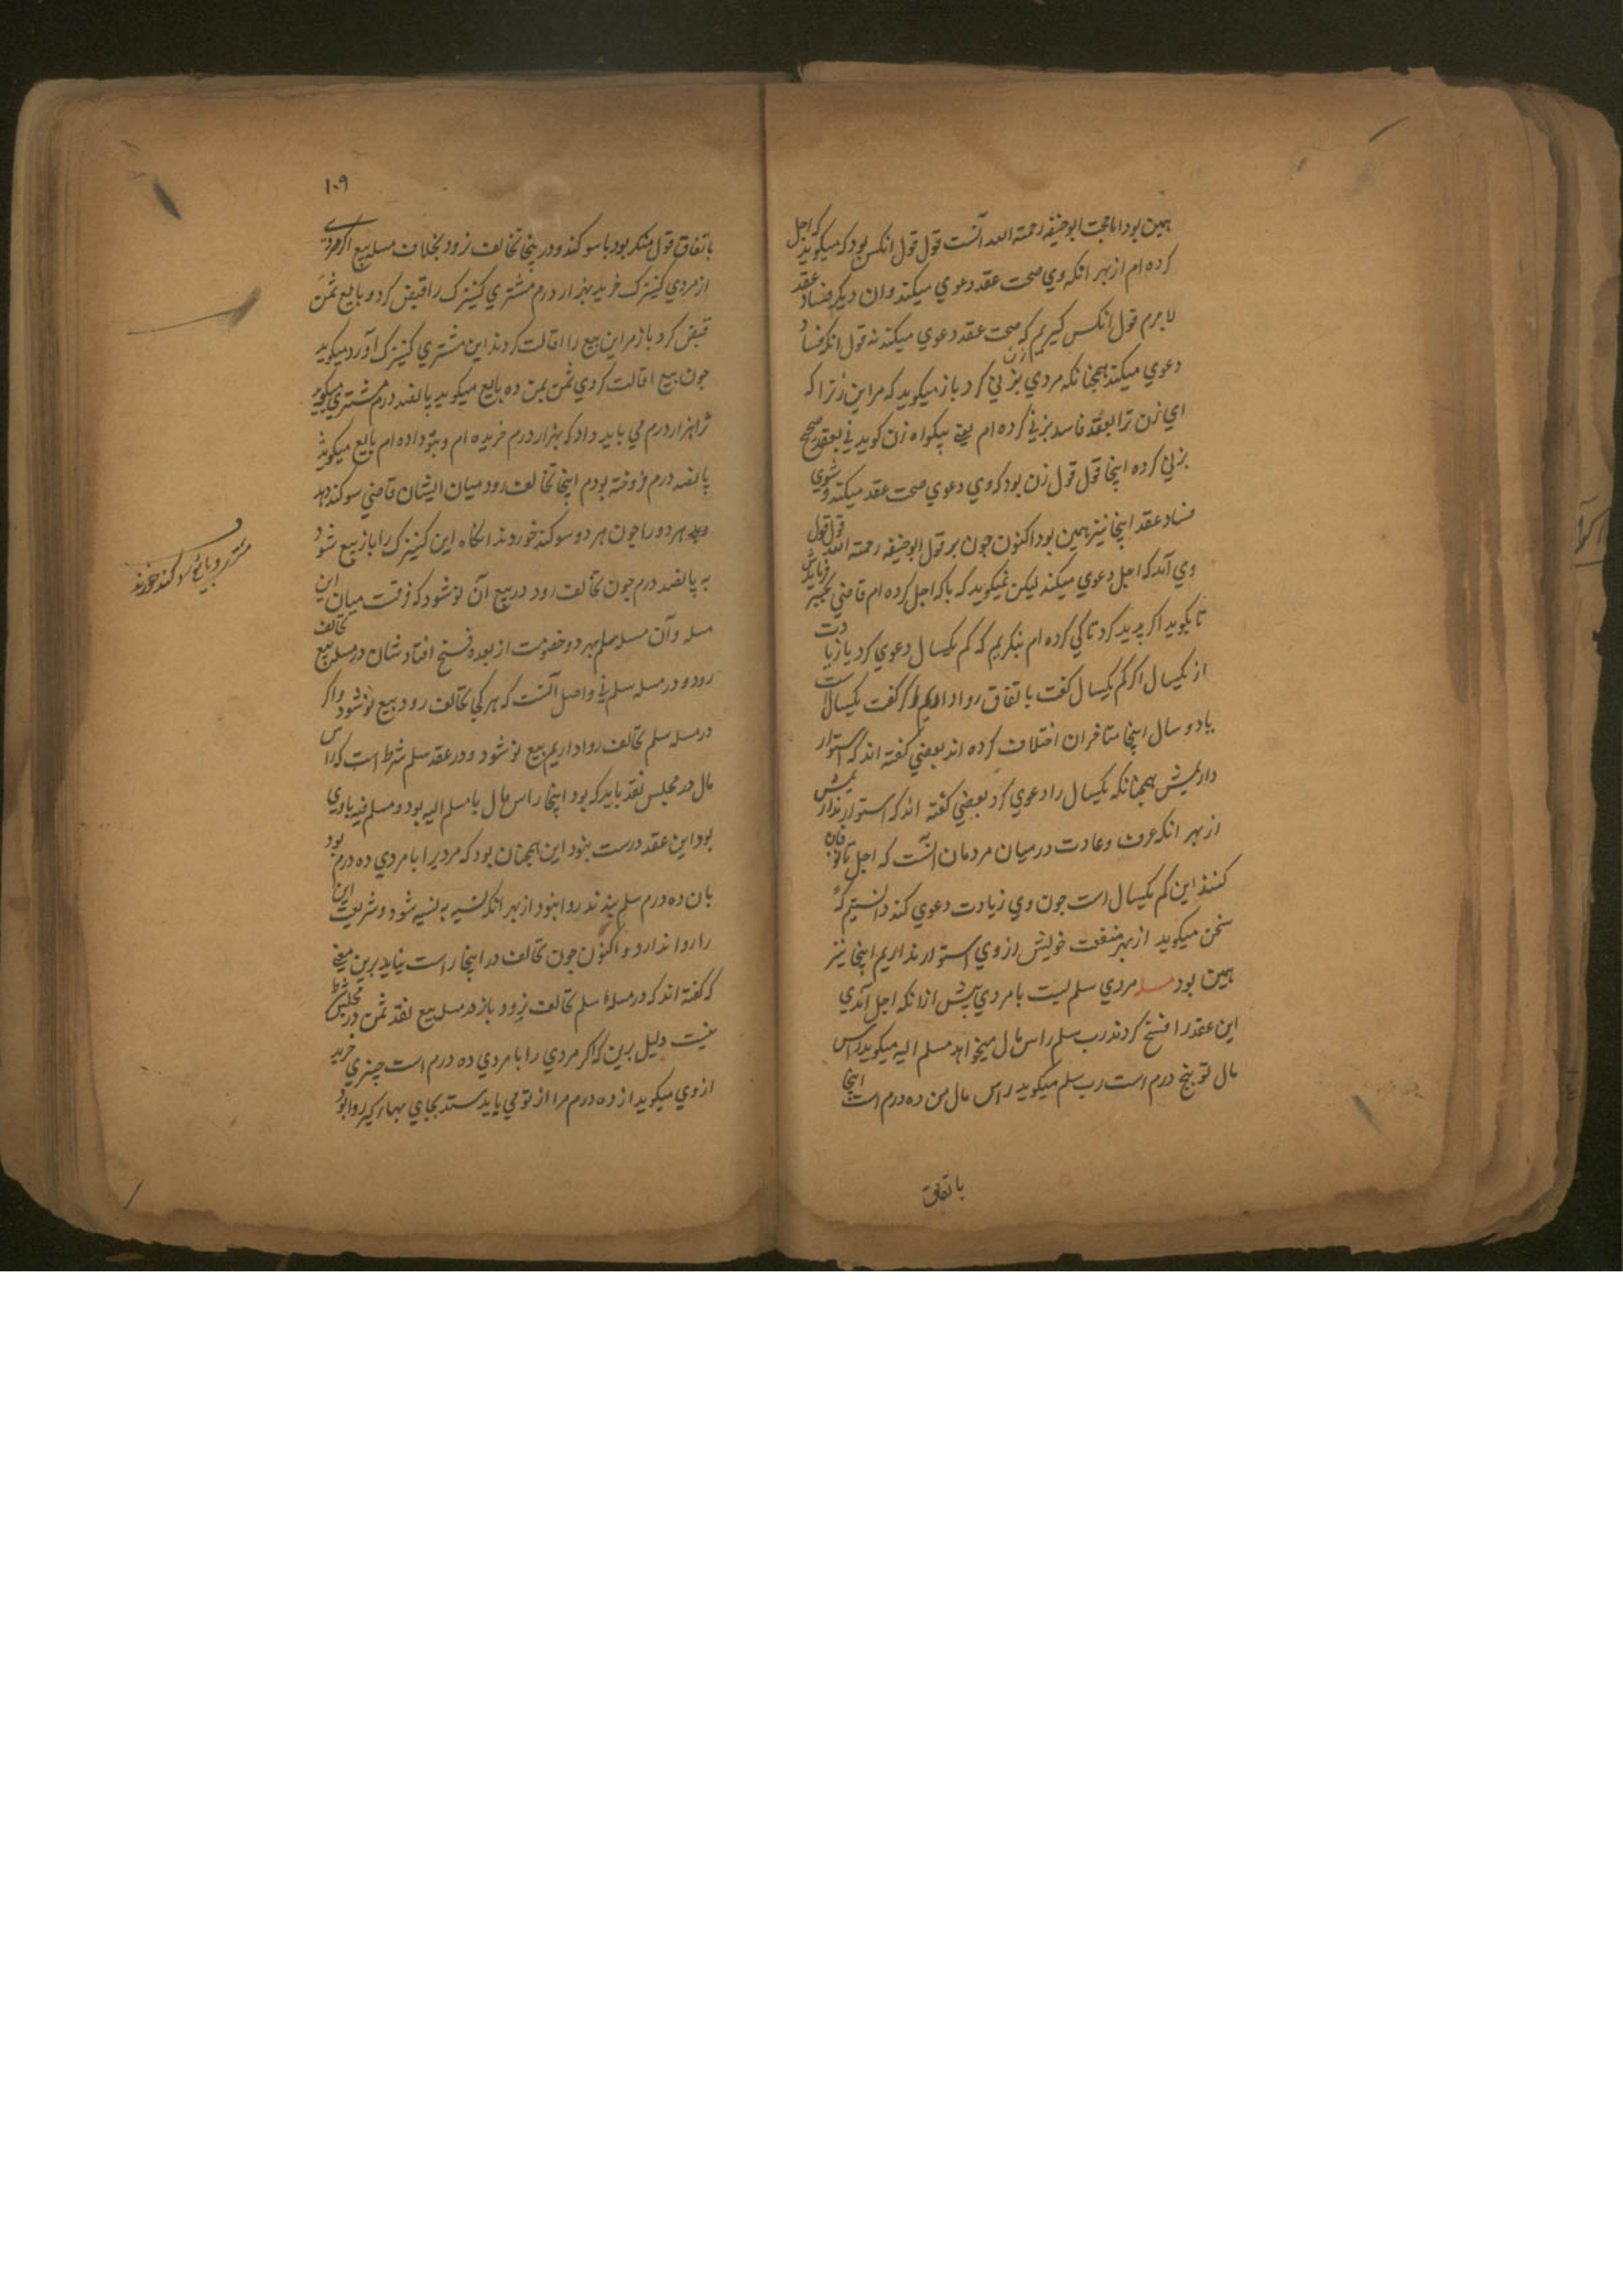 همین بود اما حجت ابو حنیفه رحمته الله آنست قول قول انکس بود که میکوید که اجل
کرده ام از بهر انکه وي صحت عقد دعوي میکند وان دیکر فساد عقد
لا جرم قول انکس کیریم که صحت عقد دعوي میکند نه قول انکه فساد
دعوي میکند همچنانکه مردي بزني کرد باز میکوید که مر این زن ترا که
اي زن ترا بعقد فاسد بزني کرده ام یعني بیکواه زن کوید ني بعقد صحیح
بزني کرده اینجا قول قول زن بود که وي دعوي صحت عقد میکند و شوي
فساد عقد اینجا نیز همین بود اکنون جون بر قول ابو حنیفه رحمته الله قول قول
وي آمد که اجل دعوي میکند لیکن نمیکوید که تا کي اجل کرده ام قاضي
تا بکوید اکر پدید کرد تا کي کرده ام بنکریم که کم یکسال دعوي کرد یا زیادت
از یکسال اکر کم یکسال کفت باتفاق روا داریم و اکر کفت یکسالست
یا دو سال اینجا متاخران اختلاف کرده اند بعضي کفته اند که استوار
داریمش همچنانکه یکسال را دعوي کرد بعضي کفته اند که استوار نداریمش
از بهر انکه عرف وعادت در میان مردمان آنست که اجل
کنند این کم یکسال است جون وي زیادت دعوي کند دانستیم که
سخن میکوید از بهر منفعت خویش از وي استوار نداریم اینجا نیز
همین بود مسله مردي سلم بست با مردي پیش ازانکه اجل آمدي
این عقد را فسخ کردند رب سلم راس مال میخواهد مسلم الیه میکوید راس
مال تو پنج درم است رب سلم میکوید راس مال من ده درم است اینجا
باتفاق
۱۰۹
باتفاق قول منکر بود با سوکند و در ینجا تخالف نرود بخلاف مسله بیع اکر مردي
از مردي کنیزک خرید بهزار درم مشتري کنیزک را قبض کرد و بایع ثمن
قبض کرد باز مر این بیع را اقالت کردند این مشتري کنیزک آورد میکوید
جون بیع اقالت کردي ثمن بمن ده بایع میکوید پانصد درم مشتري میکوید
ترا هزار درم مي باید داد که بهزار درم خریده ام و بتو داده ام بایع میکوید
پانصد درم فروخته بودم اینجا تخالف رود میان ایشان قاضي سوکند دهد
هر دو را جون هر دو سوکند خوردند انکاه این کنیزک را باز بیع شود
به پانصد درم جون تخالف رود در بیع آن نو شود که فرقت میان این
مسله وآن مسله سلم بهر دو خصومت از بعده فسخ افتاد شان در مسله بیع تخالف
رود و در مسله سلم ني واصل آنست که هر کجا تخالف رود بیع نو شود و اکر
در مسله سلم تخالف روا داریم بیع نو شود ودر عقد سلم شرط است که راس
مال در مجلس نقد باید که بود اینجا راس مال با مسلم الیه بود و مسلم فیه با وي
بود این عقد درست نبود این همچنان بود که مردیرا با مردي ده درم بود
بان ده درم سلم بندند روا نبود از بهر انکه نسیه به نسیه شود و شریعت این
را روا ندارد و اکنون جون تخالف در اینجا راست نیاید برین معني
که کفته اند که در مسلهٔ سلم تخالف نرود باز در مسله بیع نقد ثمن در مجلس شرط
نیست دلیل برین که اکر مردي را با مردي ده درم است چیزي خرید
از وي میکوید از ده درم مرا از تو مي باید ستد بجاي بها بر کیر روا بود
مشتري و بایع سوکند خورند